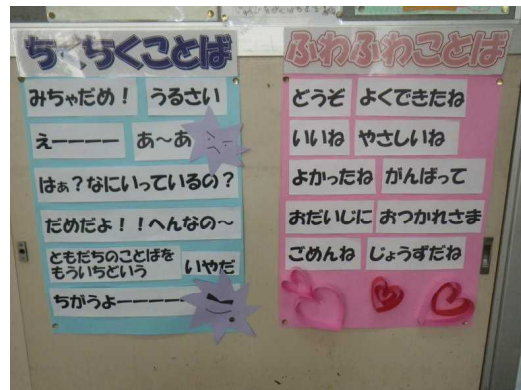 ちくちくことば
みちゃだめ！ うるさい
えーーーー あ〜あ
はぁ？なにいっているの？
だめだよ！！へんなの〜
ともだちのことばを
もういちどいう いやだ
ちがうよーーーー
ふわふわことば
どうぞ よくできたね
いいね やさしいね
よかったね がんばって
おだいじに おつかれさま
ごめんね じょうずだね